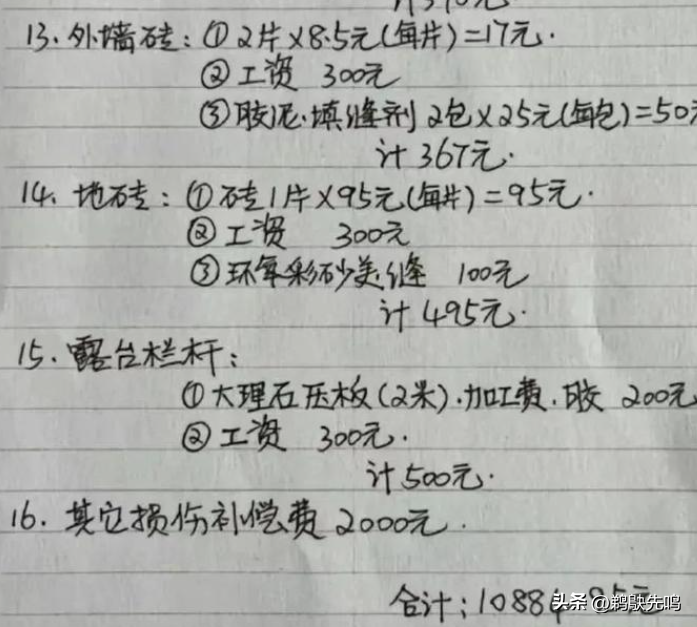 13. 外墙砖：①2片×8.5元(每片)=17元.
②工资 300元
③胶泥.填缝剂 2包×25元(每包)=50
计367元.
14. 地砖：①砖1片×95元(每片)=95元.
②工资 300元
③环氧彩砂美缝 100元
计495元.
15. 露台栏杆：
①大理石压板(2米).加工费.胶 200元
②工资 300元.
计500元.
16. 其它损伤补偿费 2000元.
合计：1088
头条 @鹈鴃先鸣